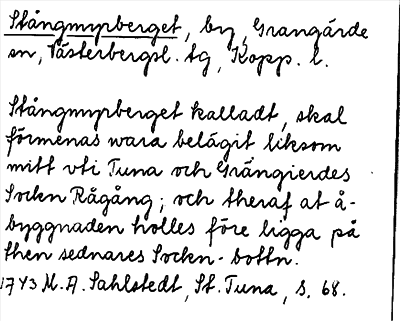 Stångmyrberget, by, Grangärde
sn, Västerbergsl. tg, Kopp. l.
Stångmyrberget kalladt, skal
förmenas wara belägit liksom
mitt vti Tuna och Grängierdes
Sockn Rågång; och theraf at å-
byggnaden holles före ligga på
then sednares Socken-bottn.
1743 M. A. Sahlstedt, St. Tuna, s. 68.